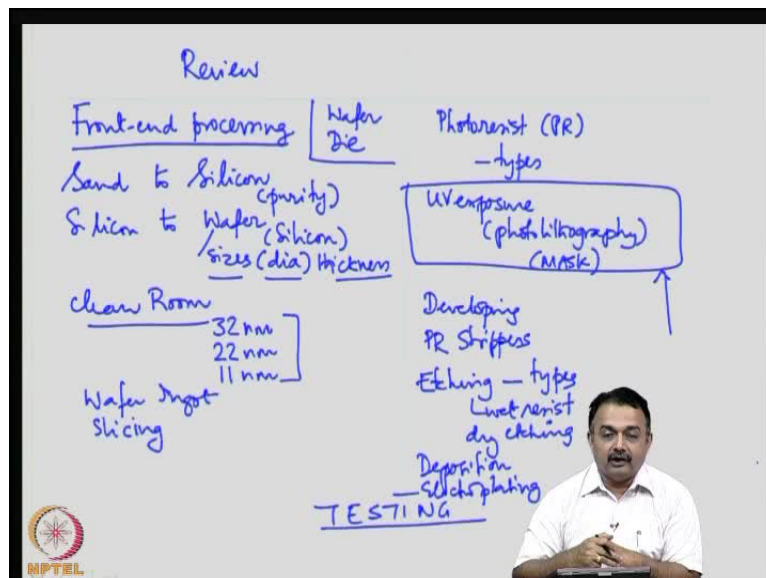 Review
Front-end processing
Wafer
Die
Sand to Silicon
(purity)
Silicon to Wafer
(Silicon)
/sizes (dia) thickness
Clean Room
32 nm
22 nm
11 nm
Wafer Ingot
Slicing
Photoresist (PR)
- types
UV exposure
(photolithography)
(MASK)
Developing
PR Strippers
Etching - types
wet resist
dry etching
Deposition
- Electroplating
TESTING
NPTEL